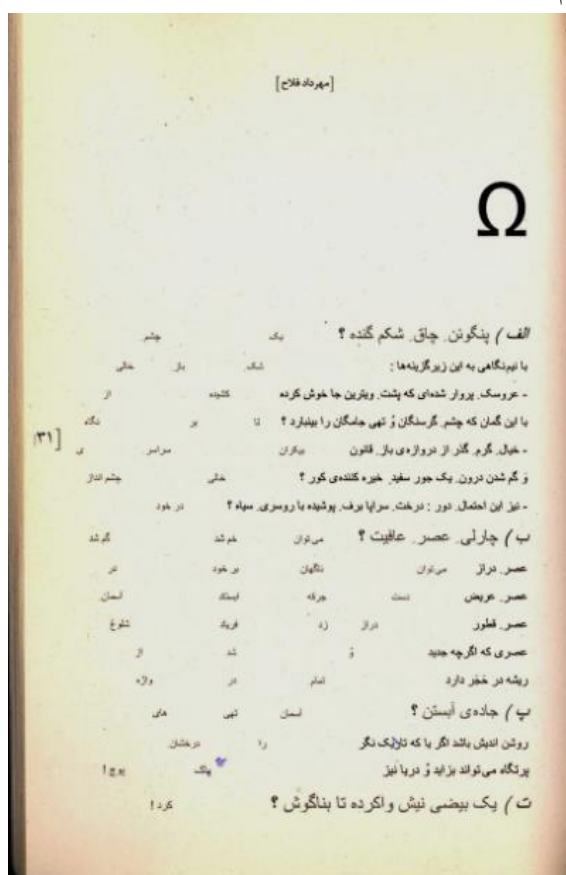 [مهرداد فلاح]
Ω
الف ) پنگوئن ِ چاق ِ شکم گنده ؟ یک چشم
با نیم‌نگاهی به این زیرگزینه‌ها : شک باز خالی
- عروسک ِ پروار شده‌ای که پشت ِ ویترین جا خوش کرده کشیده از
با این گمان که چشم ِ گرسنگان وُ تهی جامگان را بینبارد ؟ تا بر نگاه
[۳۱]
- خیال ِ گرم ِ گذر از دروازه‌ی باز ِ قانون بیکران سراسر ی
وَ گم شدن درون ِ یک جور سفید ِ خیره کننده‌ی کور ؟ خالی چشم انداز
- نیز این احتمال ِ دور : درخت ِ سراپا برف ِ پوشیده با روسری ِ سیاه ؟ در خود
ب ) چارلی ِ عصر ِ عافیت ؟ می‌توان خم شد گم شد
عصر ِ دراز می‌توان ناگهان بر خود در
عصر ِ عریض دست جرقه ایستاد آسمان
عصر ِ قطور دراز زد فریاد شلوغ
عصری که اگرچه جدید وُ شد از
ریشه در حَجَر دارد تمام در واژه
پ ) جاده‌ی آبستن ؟ آسمان تهی های
روشن اندیش باشد اگر یا که تاریک نگر را درخشان
پرتگاه می‌تواند بزاید وُ دریا نیز پاک پوچ !
ت ) یک بیضی نیش واکرده تا بناگوش ؟ کرد !